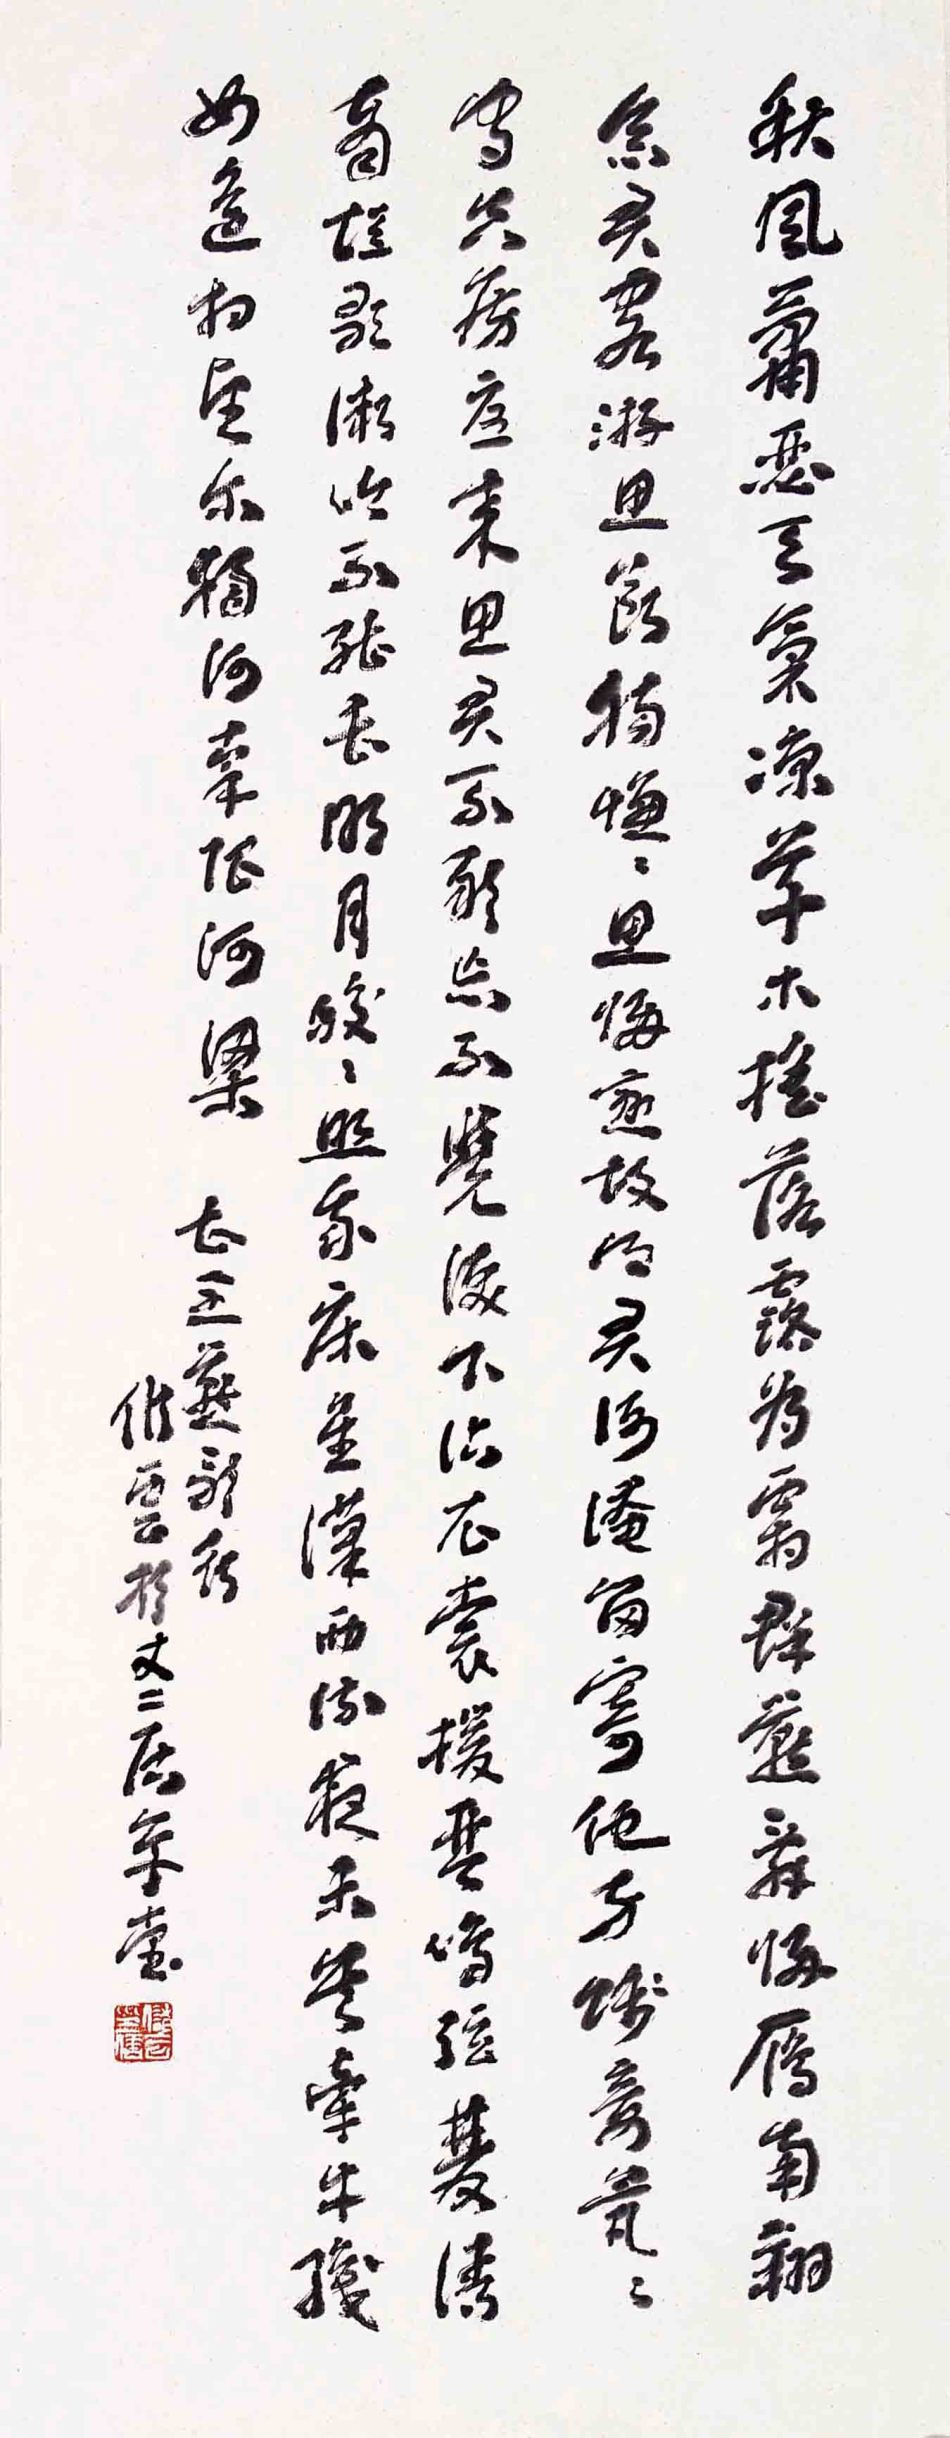 秋風蕭瑟天氣涼草木搖落露為霜群燕辭歸雁南翔
念君客游思斷腸慊〻思歸戀故鄉君何淹留寄他方賤妾煢〻
守空房憂來思君不敢忘不覺淚下沾衣裳援琴鳴弦發清
商短歌微吟不能長明月皎〻照我床星漢西流夜未央牽牛織
女遙相望爾獨何辜限河梁 曹丕燕歌行
雲於丈二居